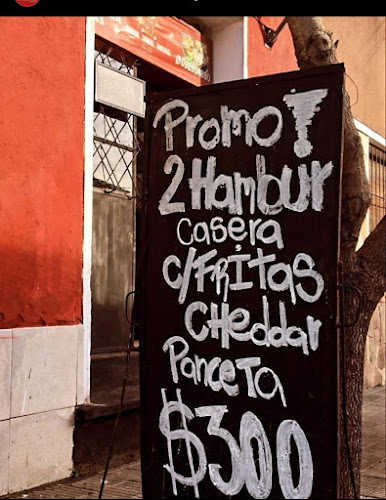 Promo!
2 Hambur
Casera
c/FRitas
CHeddar
Panceta
$300